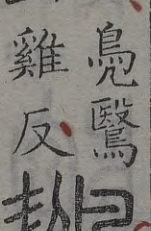 鳧鷖
雞反